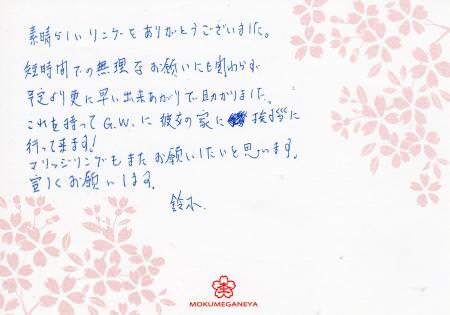 素晴らしいリングをありがとうございました。
短時間での無理なお願いにも関わらず
予定より更に早い出来あがりで助かりました。
これを持ってG.W.に彼女の家に挨拶に
行って来ます!
マリッジリングもまたお願いしたいと思います。
宜しくお願いします。
鈴木
MOKUMEGANEYA